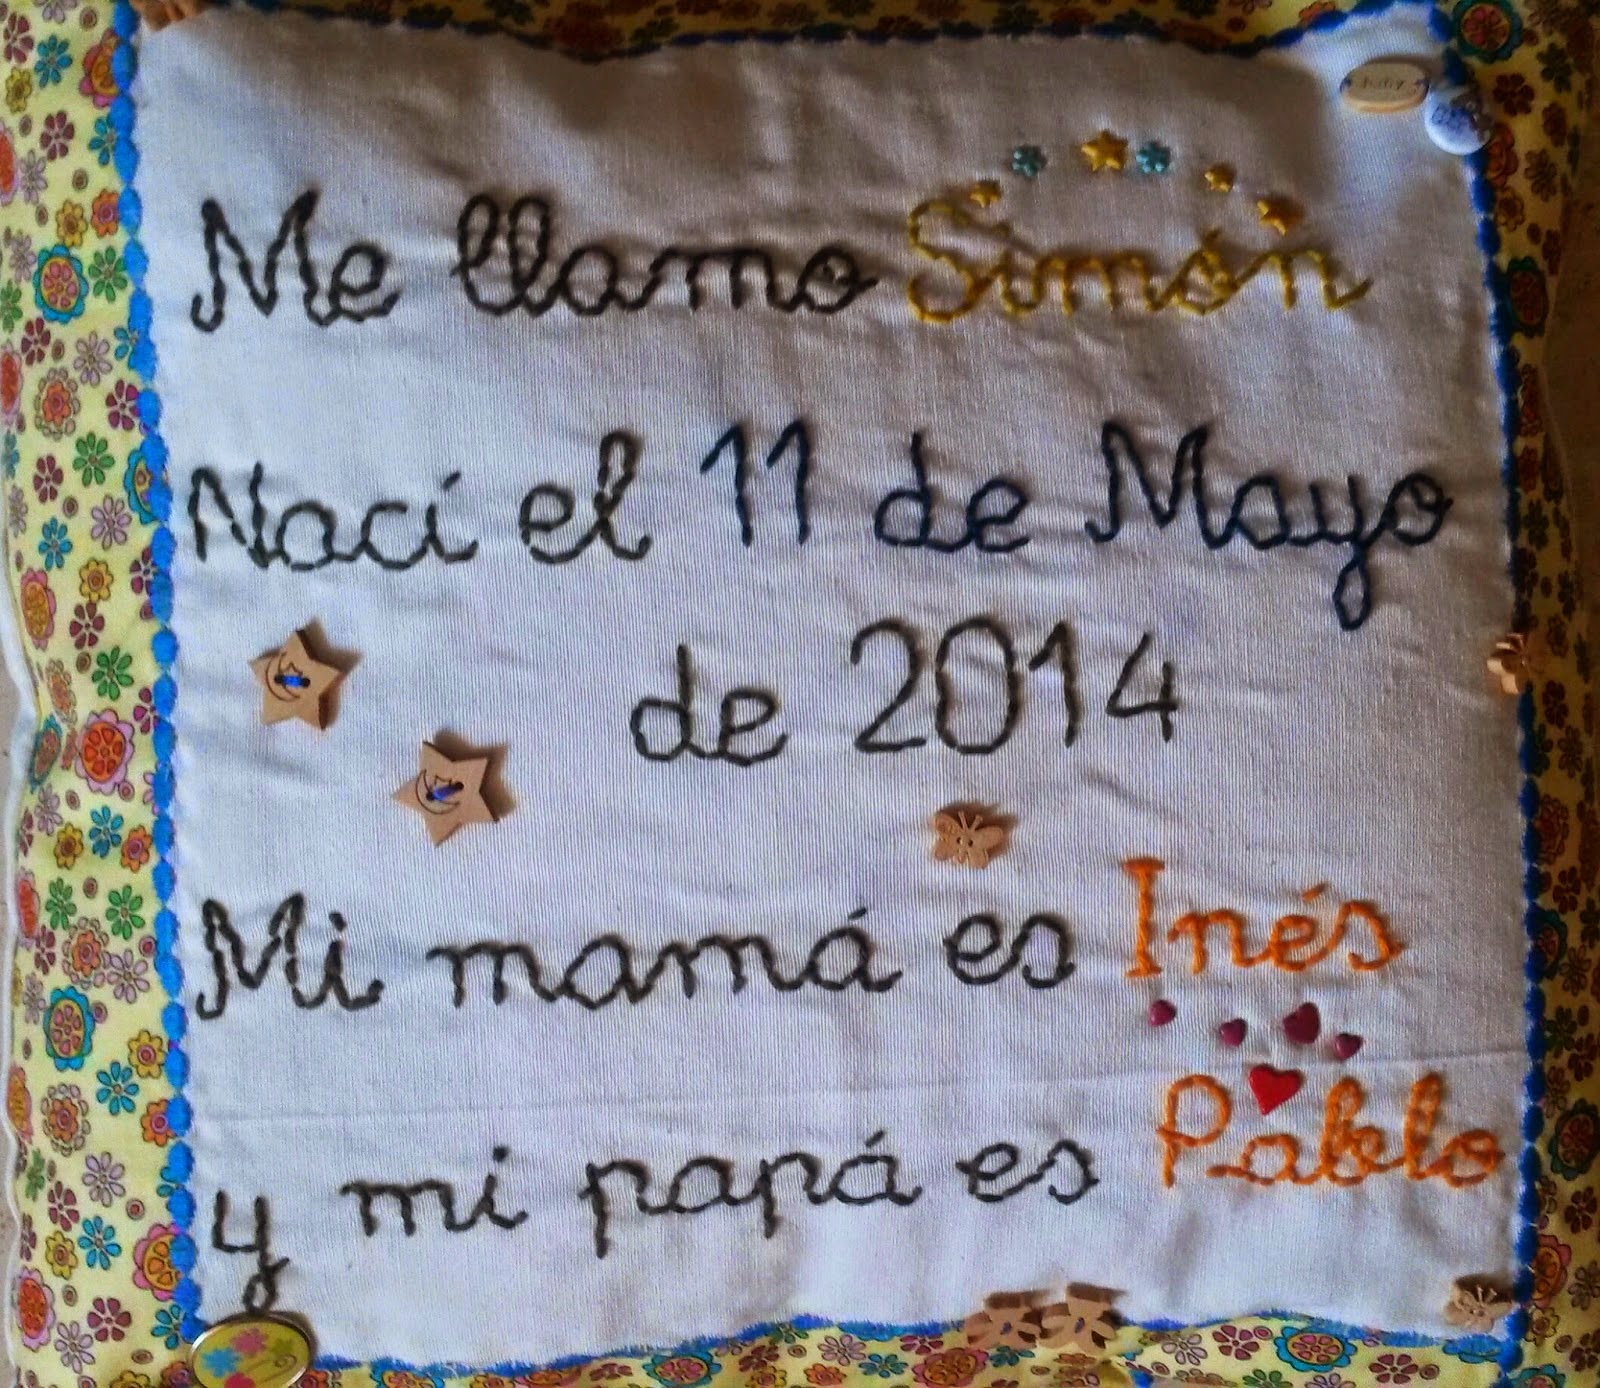 baby
Me llamo Simón
Nací el 11 de Mayo
de 2014
Mi mamá es Inés
y mi papá es Pablo